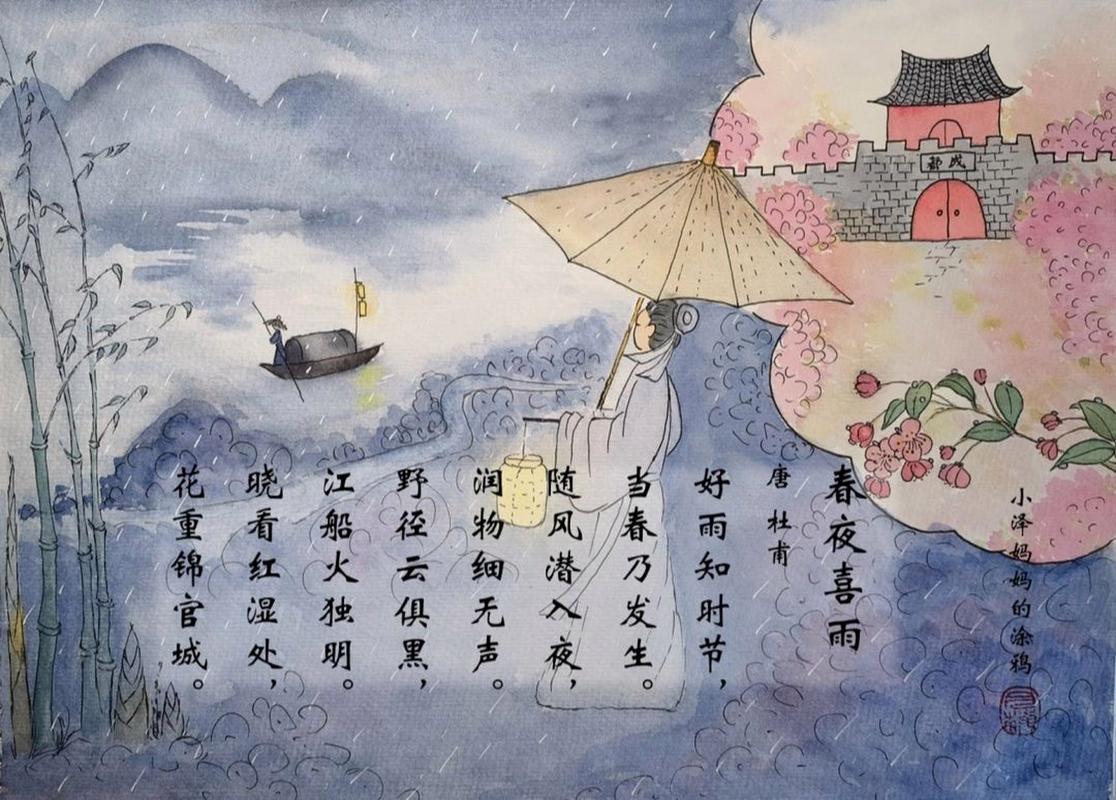 春夜喜雨
唐 杜甫
好雨知时节，
当春乃发生。
随风潜入夜，
润物细无声。
野径云俱黑，
江船火独明。
晓看红湿处，
花重锦官城。
小泽妈妈的涂鸦
成都